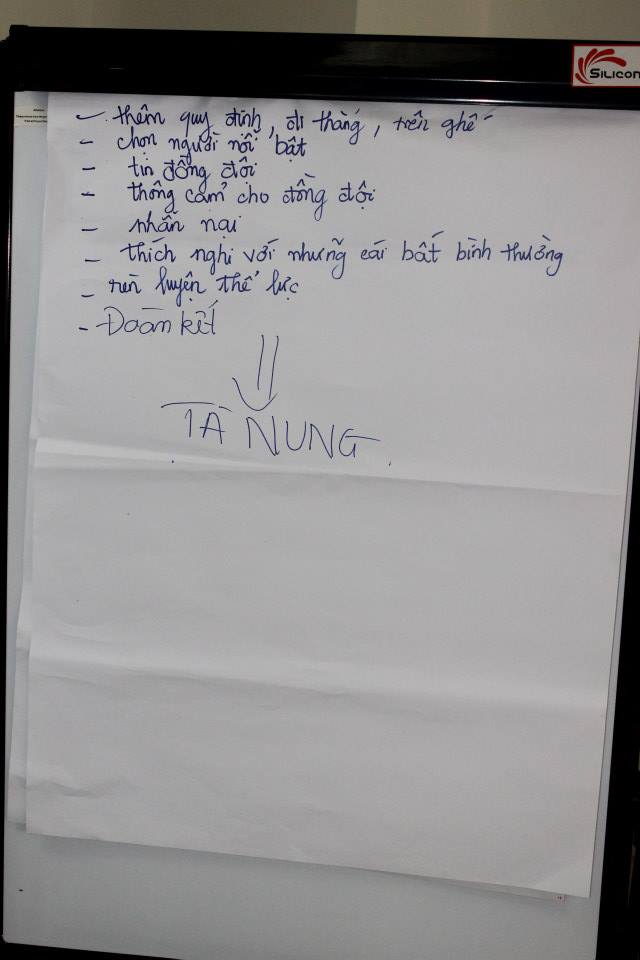 SILICON
- thêm quy định, đi thẳng, trên ghế
- chọn người nổi bật
- tin đồng đội
- thông cảm cho đồng đội
- nhẫn nại
- thích nghi với những cái bất bình thường
- rèn luyện thể lực
- Đoàn kết
TÀ NUNG